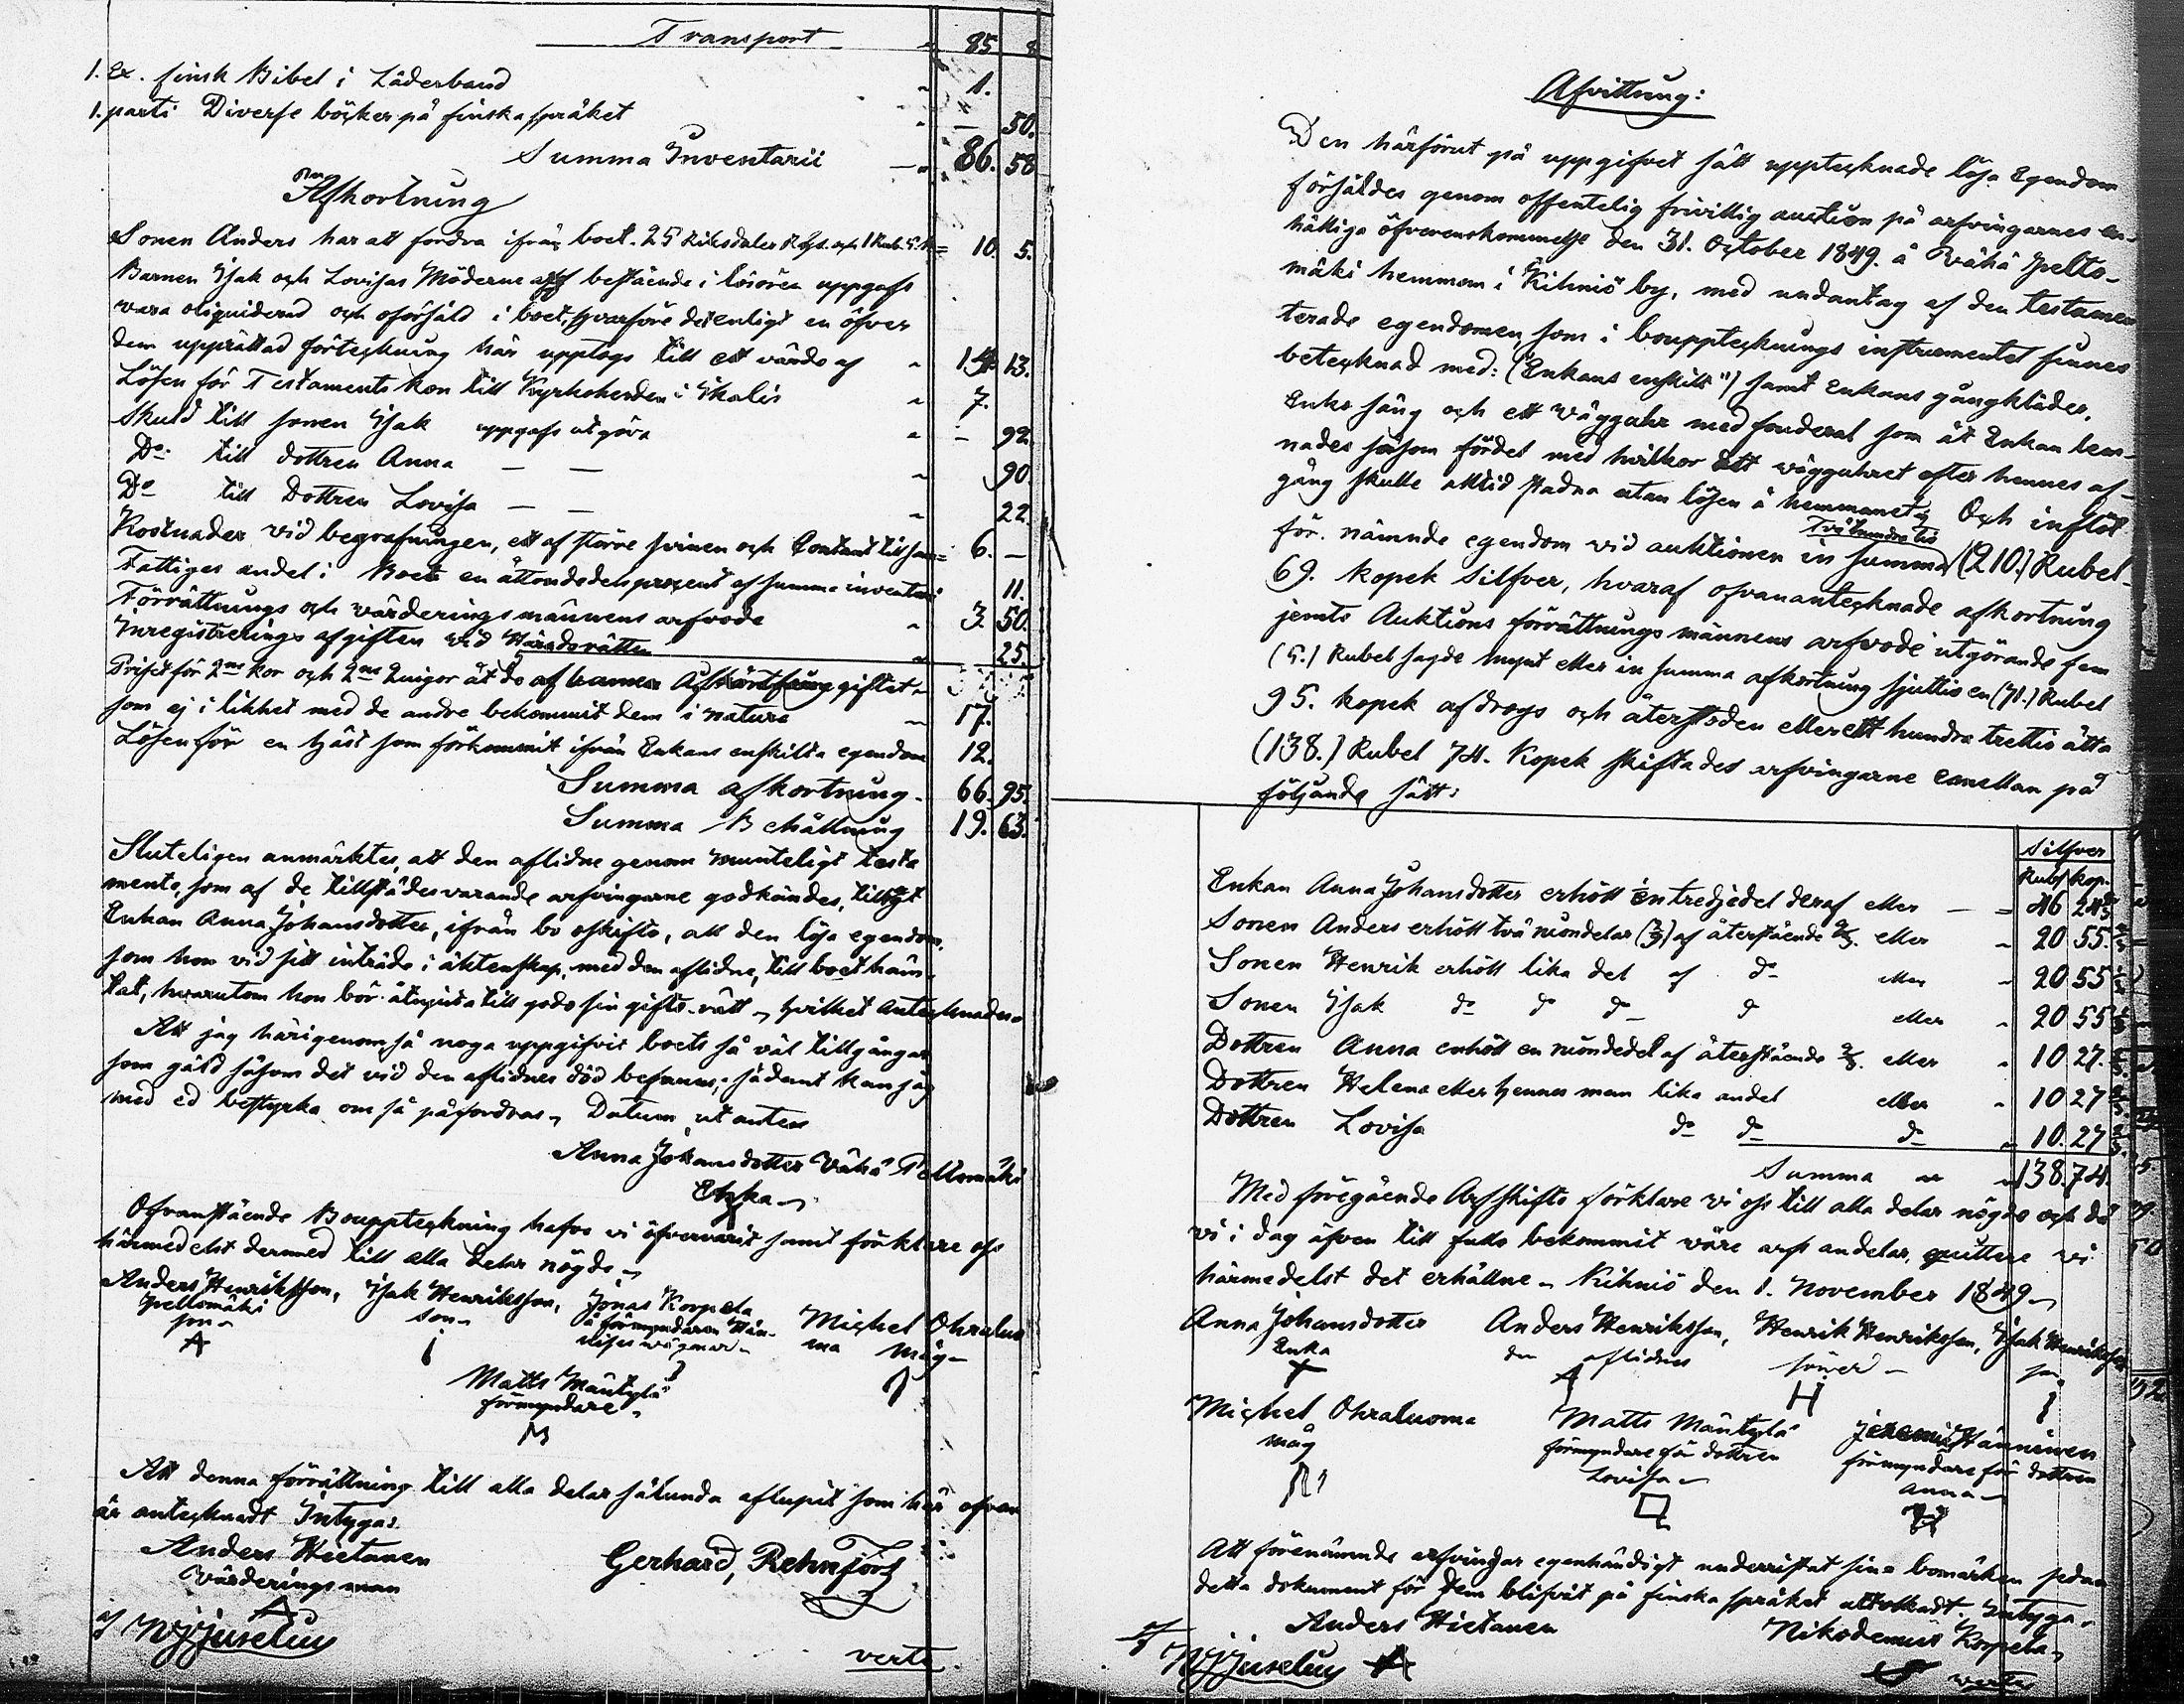 Transport 85 8
1. Ex. finsk Bibel i Läderband " 1.
1. parti Diverse böcker på finska språket " — 50.
Summa Inventarii — " 86. 58
Afkortning
Sonen Anders har att fordra ifrån boet. 25 Riksdaler Rgs. och 1 Rub. 5. k = 10. 5.
Barnen Isak och Lovisas Möderne arf bestående i lösören uppgafs
vara oliquiderad och oförsåld i boet, hvarföre det enligt en öfver
dem upprättad förteckning här upptogs till ett värde af " 14 13.
Lösen för Testaments kon till Kyrkoherden i Ikalis " 7.
Skuld till sonen Isak uppgafs utgöra " — 92
Do. till dottren Anna — — " 90
Do till Dottren Lovisa — — " 22.
Kostnader vid begrafningen, ett af större svinen och Contant tillsam= 6. —
Fattiges andel i Boet en åttondedels procent af summa inventarii 11.
Förrättnings och värderingsmännens arfvode " 3. 50.
Inregistrerings afgiften vid Häradsrätten " 25.
Priset för 2ne kor och 2ne Quigor åt de af barnen giftet
som ej i likhet med de andre bekommit dem i natura " 17.
Lösen för en häst som förkommit ifrån Enkans enskilta egendom 12.
Summa afkortning. 66. 95.
Summa Behållning 19. 63.
Sluteligen anmärktes, att den aflidne genom munteligt testa
mente, som af de tillstädesvarande arfvingarne godkändes, tillagt
Enkan Anna Johansdotter, ifrån bo oskifto, all den lösa egendom,
som hon vid sitt inträde i äktenskap, med den aflidne, till boet häm-
tat, hvarutom hon bör åtnjuta till godo sin gifto-rätt, hvilket antecknades
Att jag härigenom så noga uppgifvit boets så väl tillgångar
som gäld såsom det vid den aflidnes död befanns, sådant kan jag
med ed bestyrka om så påfordras, Datum ut antea
Anna Johansdotter Vähä Peltomäki
Enka
Ofvanstående Bouppteckning hafve vi öfvervarit samt förklare oss
härmedelst dermed till alla delar nögde
Anders Henriksson, Isak Henriksson, Jonas Korpela Michel Ohraluo
Peltomäki son son å förmyndaren Hän- ma måg
nises vägnar
A I
Matts Mäntylä
förmyndare
M
Att denna förrättning till alla delar sålunda aflupit som här ofvan
är antecknadt Intygas
Anders Hietanen Gerhard, Rehnfors
Värderingsman
A
af WJJuselius
verte.
Afvittring:
Den härförut på uppgifvet sätt upptecknade lösa Egendom
försåldes genom offentelig frivillig auction på arfvingarnes en-
hälliga öfverenskommelse den 31. October 1849. å Vähä Pelto-
mäki hemman i Kihniö by, med undantag af den testamen
terade egendomen, som i bouppteckningsinstrumentet finnes
betecknad med: ("Enkans enskilt") samt Enkans gångkläder,
Enko säng och ett vägguhr med fouderal som åt Enkan lem-
nades såsom fördel med wilkor att vägguhret efter hennes af-
gång skulle alltid stadna utan lösen å hemmanet, Och inflöt
Tvåhundra tio
för. nämnde egendom vid auktionen in summa (210.) Rubel
69. kopek silfver, hvaraf ofvanantecknade afkortning
jemte Auktions förrättningsmännens arfvode utgörande fem
(5.) Rubel sagde mynt eller in summa afkortning sjuttio en (71.) Rubel
95. kopek afdrogs och återstoden eller ett hundra trettio åtta
(138.) Rubel 74. Kopek skiftades arfvingarne emellan på
följande sätt:
Silfver
Rub Kop.
Enkan Anna Johansdotter erhöll en tredjedel deraf eller — = 46 24
Sonen Anders erhöll två niondelar (2/9) af återstående 2/3. eller " 20 55
Sonen Henrik erhöll lika del af do eller " 20 55
Sonen Isak do do do do eller " 20 55
Dottren Anna erhöll en niondedel af återstående 2/3. eller " 10 27.
Dottren Helena eller hennes man lika andel eller " 10 27
Dottren Lovisa do do do " 10. 27
Summa " 138. 74.
Med föregående Arfskifte förklare vi oss till alla delar nögde och då
vi i dag äfven till fullo bekommit våre arfs andelar, quittere vi
härmedelst det erhållne. Kihniö den 1. November 1849.
Anna Johansdotter Anders Henriksson, Henrik Henriksson, Isak Henriksson
Enka den aflidnes söner son
A H I
Michel Ohraluoma Matts Mäntylä Jeremias Hänninen
måg förmyndare för dottren förmyndare för dottren
Lovisa Anna
Att förenämnde arfvingar egenhändigt underristat sina bomärken sedan
detta dokument för dem blifvit på finska språket uttolkadt, intyga,
Anders Hietanen Nikodemus Korpela
af WJJuselius A verte